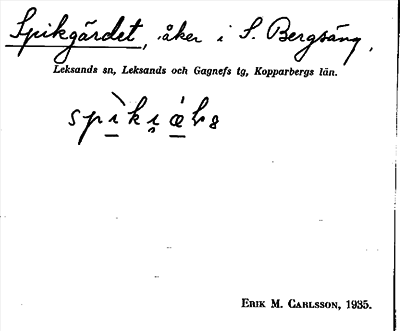 Spikgärdet, åker i S. Bergsäng.
Leksands sn, Leksands och Gagnefs tg, Kopparbergs län.
ERIK M. CARLSSON, 1935.